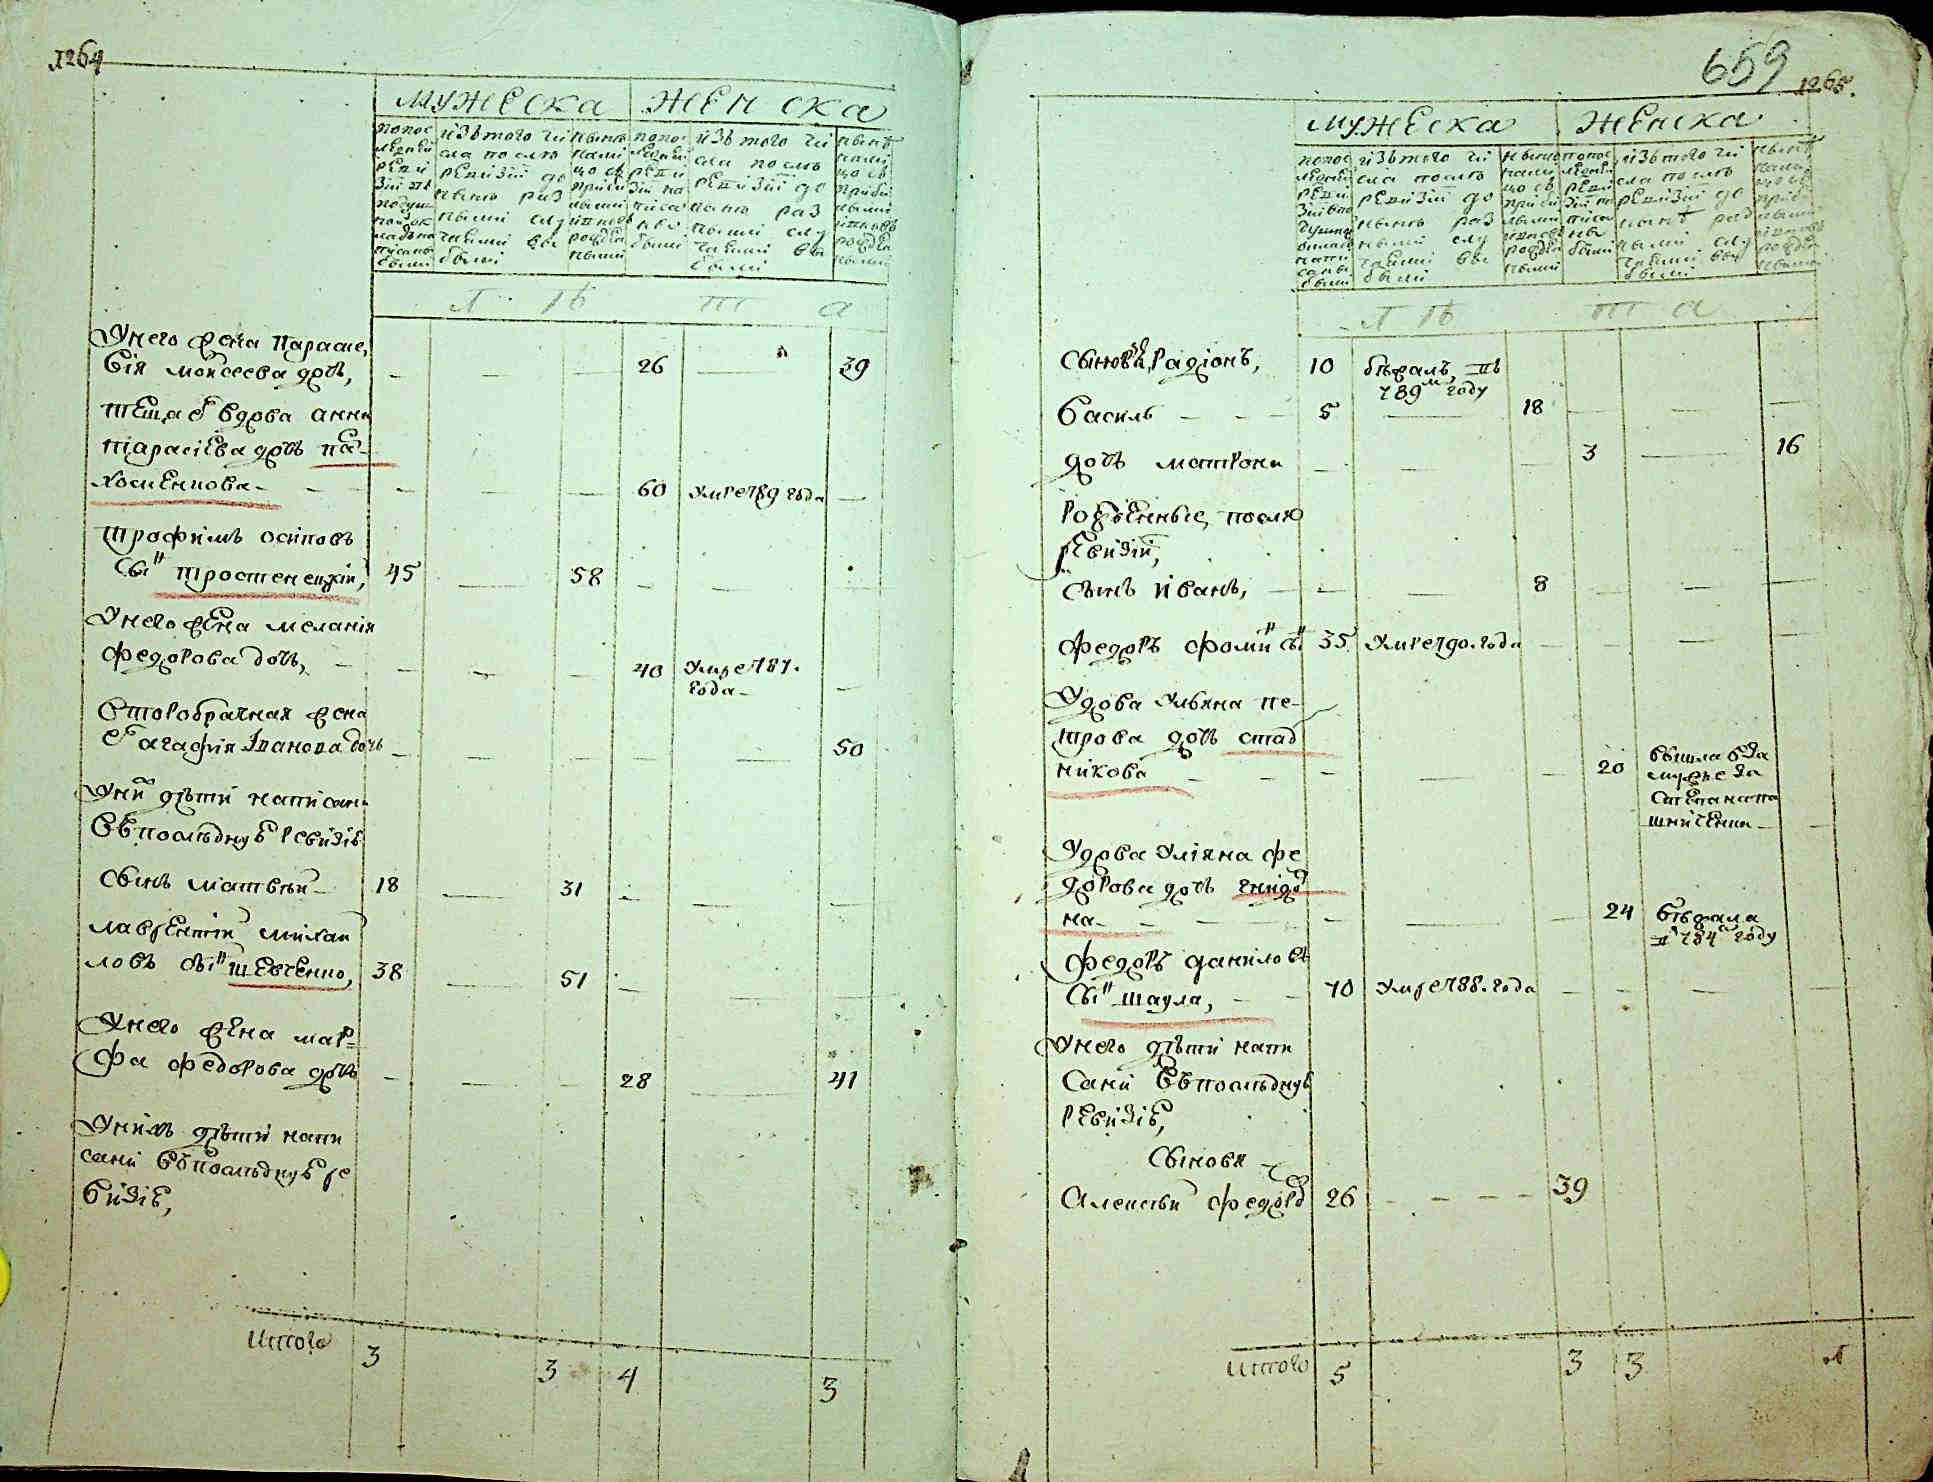 1264
мужеска женска
попос лѣдней ревизіи въ подуш ной ок ладъ на писано были
изъ того чи сла послѣ ревизіи до нынѣ раз ными слу чаями вы были
нынѣ нали цо съ прибы лыми и вновь рожден ными
попос лѣдней ревизіи на писа но были
изъ того чи сла послѣ ревизіи до нынѣ раз ными слу чаями вы были
нынѣ нали цо съ прибы лыми и вновь рожден ными
л ѣ т а
Унего жена Параске,
вія моисеева дочь, — — — 26 — 39
теща Ево вдова анна
тарасіева дочь па-
хоменкова — — — — — 60 умре 789 года —
трофимъ осиповъ
сынъ тростенецкій, 45 — 58 — — —
Унего жена меланія
федорова дочь, — — — — 40 умре 787.
года — —
Второбрачная жена
Ево агафія Іванова дочь — — — — — 50
Унихъ дѣти написани
Въпослѣднуе ревизіе
сынъ матвѣй — 18 — 31 — — —
лаврентій михаи
ловъ сынъ шевченко, 38 — 51 — — —
Унего жена мар-
фа федорова дочь — — — 28 — 41
Унихъ дѣти напи
сани въпослѣднуе ре
визіе,
Итого 3 3 4 3
659
1265.
мужеска женска
попос лѣдней ревизіи въ по душной оклад напи саны были
изъ того чи сла послѣ ревизіи до нынѣ раз ными слу чаями вы были
нынѣ нали цо съ прибы лыми и вновь рожден ными
попос лѣдней ревизіи на писа но были
изъ того чи сла послѣ ревизіи до нынѣ раз ными слу чаями вы были
нынѣ нали цо съ прибы лыми и вновь рожден ными
л ѣ т а
Сыновя, Радіонъ, 10 бѣжалъ, въ
789м году
василь — — — 5 — 18 — — —
дочь матрона — — — 3 — 16
Рожденные, послѣ
ревизіи,
сынъ иванъ, — — — 8 — — —
федоръ фоминъ сынъ 35 умре 790. года — — — —
Удова ульяна пе-
трова дочь стад
никова — — — — — 20 вышла вза
мужъ за
степана по
шниченка — —
Удова уліяна фе
дорова дочь гнидо
на — — — — — 24 бѣжала
въ 784м году
федоръ даниловъ
сынъ шаула, — — 70 умре 788. года — — — —
Унего дѣти напи
сани Въпослѣднуе
ревизіе,
Сыновя —
алексѣй федоръ 26 — — — — 39
Итого 5 3 3 1